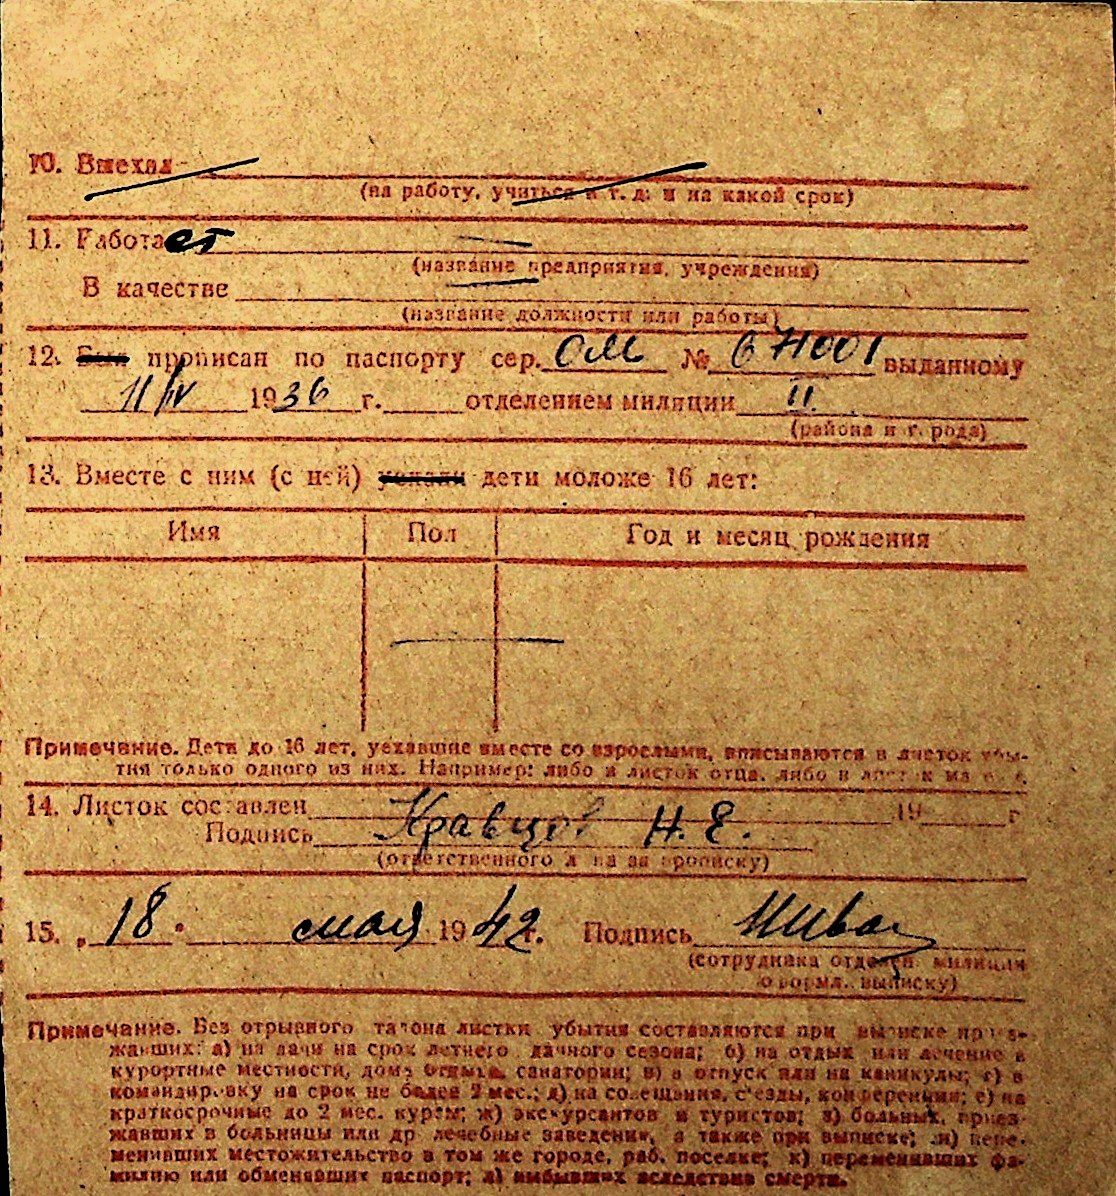 10. Выехал
(на работу, учиться и т. д. и на какой срок)
11. Работает
(название предприятия, учреждения)
В качестве
(название должности или работы)
12. Был прописан по паспорту сер. ОМ № 671001 выданному
11/IV 1936 г. отделением милиции II
(района и города)
13. Вместе с ним (с ней) уехали дети моложе 16 лет:
Имя Пол Год и месяц рождения
Примечание. Дети до 16 лет, уехавшие вместе со взрослыми, вписываются в листок убы-
тия только одного из них. Например: либо в листок отца, либо в листок
14. Листок составлен 19 г
Подпись Кравцов Н. Е.
(ответственного лица за прописку)
15. „18" мая 1942 г. Подпись
(сотрудника отделен. милиции
оформл. выписку)
Примечание. Без отрывного талона листки убытия составляются при выписке приез-
жавших: а) на дачи на срок летнего дачного сезона; б) на отдых или лечение в
курортные местности, дома отдыха, санатории; в) в отпуск или на каникулы; г) в
командировку на срок не более 2 мес.; д) на совещания, с'езды, конференции; е) на
краткосрочные до 2 мес. курсы; ж) экскурсантов и туристов; з) больных, приез-
жавших в больницы или др лечебные заведения, а также при выписке; и) пере-
менивших местожительство в том же городе, раб. поселке; к) переменивших фа-
милию или обменявших паспорт; л) выбывших вследствие смерти.